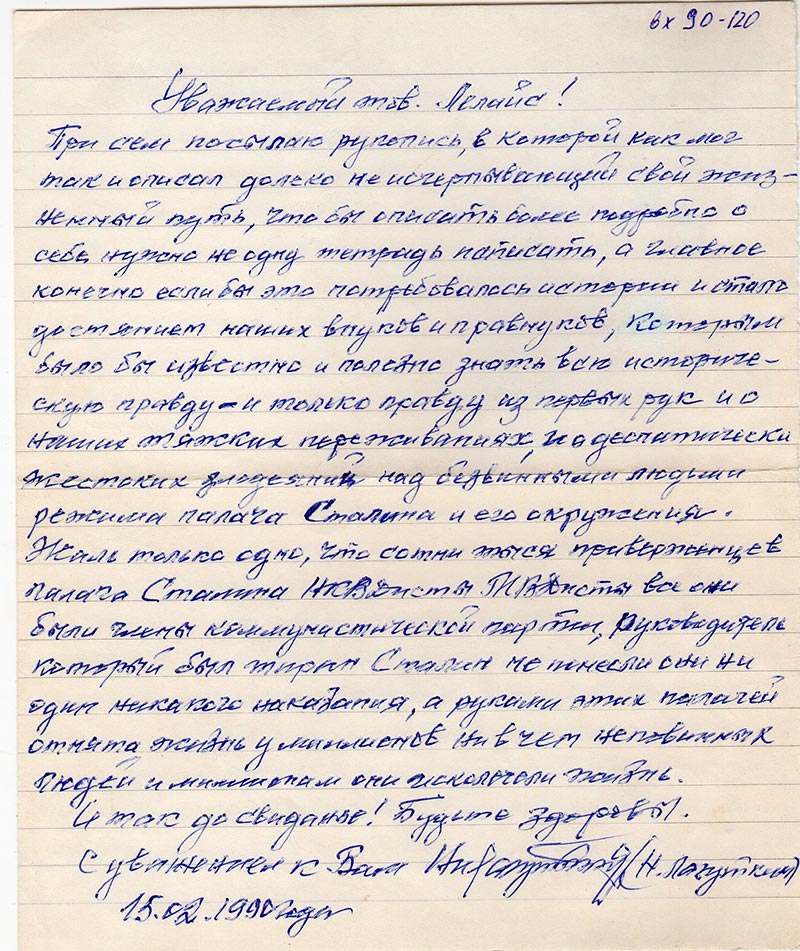 вх 90-120
Уважаемый тов. Лелайс!
При сем посылаю рукопись, в которой как мог
так и описал долеко не исчерпывающий свой жиз-
ненный путь, что бы описать более подробно о
себе нужно не одну тетрадь написать, а главное
конечно если бы это потребовалось истории и стало
достянием наших внуков и правнуков, которым
было бы известно и полезно знать всю историче-
скую правду – и только правду из первых рук и о
наших тяжких переживаниях,
жестоких злодеяний над безвинными людьми
режима палача Сталина и его окружения.
Жаль только одно, что сотни тысяч приверженцев
палача Сталина НКВДисты все они
были члены коммунистической партии, руководителе
который был тиран Сталин не понесли они ни
один никакого наказания, а руками этих палачей
отнята жизнь у миллионов ни в чем неповинных
людей и миллионам они исколечели жизнь.
И так до свиданье! Будьте здоровы.
С уважением к Вам (Н. Лакуткин)
15.02.1990 года